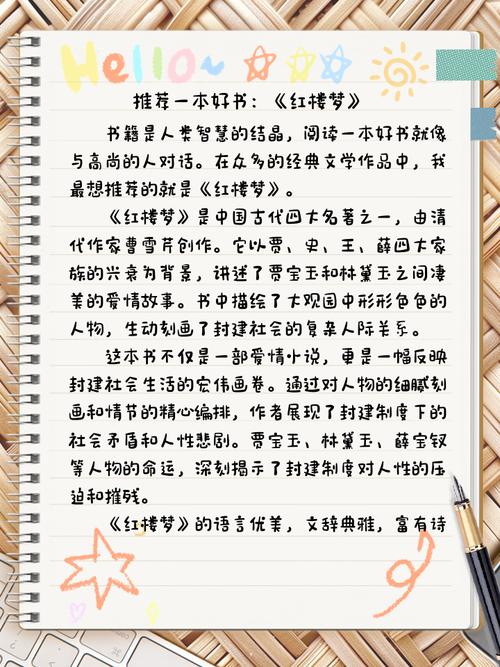 Hello~
推荐一本好书：《红楼梦》
书籍是人类智慧的结晶，阅读一本好书就像
与高尚的人对话。在众多的经典文学作品中，我
最想推荐的就是《红楼梦》。
《红楼梦》是中国古代四大名著之一，由清
代作家曹雪芹创作。它以贾、史、王、薛四大家
族的兴衰为背景，讲述了贾宝玉和林黛玉之间凄
美的爱情故事。书中描绘了大观园中形形色色的
人物，生动刻画了封建社会的复杂人际关系。
这本书不仅是一部爱情小说，更是一幅反映
封建社会生活的宏伟画卷。通过对人物的细腻刻
画和情节的精心编排，作者展现了封建制度下的
社会矛盾和人性悲剧。贾宝玉、林黛玉、薛宝钗
等人物的命运，深刻揭示了封建制度对人性的压
迫和摧残。
《红楼梦》的语言优美，文辞典雅，富有诗